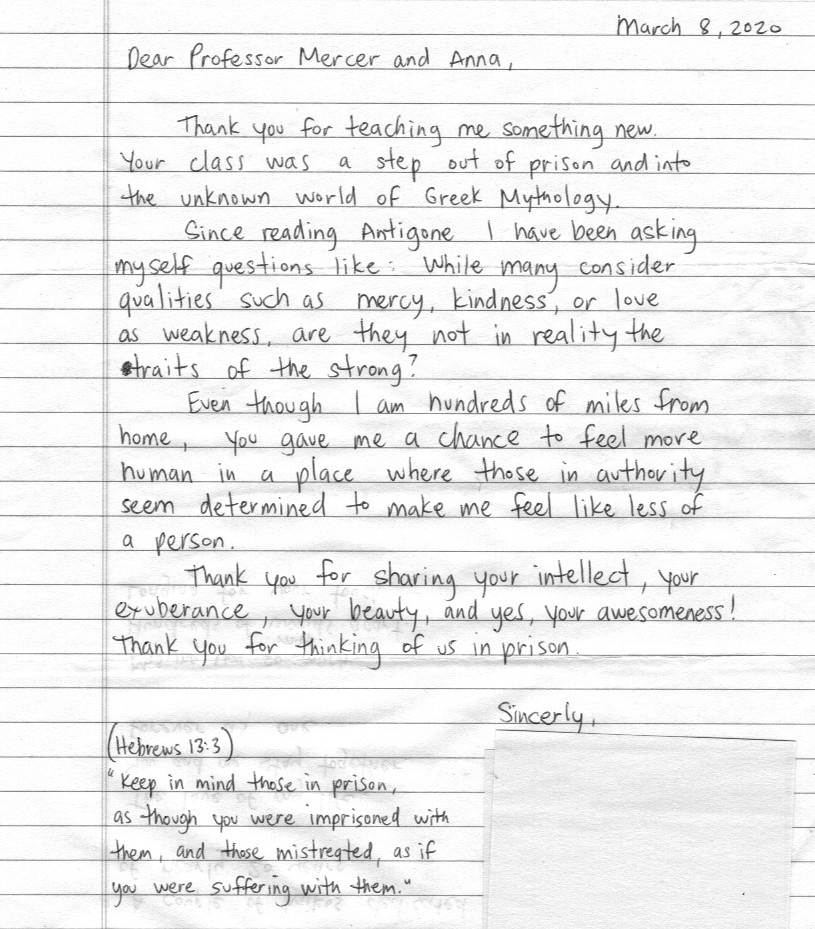 March 8, 2020
Dear Professor Mercer and Anna,
Thank you for teaching me something new.
Your class was a step out of prison and into
the unknown world of Greek Mythology.
Since reading Antigone I have been asking
myself questions like: While many consider
qualities such as mercy, kindness, or love
as weakness, are they not in reality the
traits of the strong?
Even though I am hundreds of miles from
home, you gave me a chance to feel more
human in a place where those in authority
seem determined to make me feel like less of
a person.
Thank you for sharing your intellect, your
exuberance, your beauty, and yes, your awesomeness!
Thank you for thinking of us in prison.
Sincerly,
(Hebrews 13:3)
"Keep in mind those in prison,
as though you were imprisoned with
them, and those mistreated, as if
you were suffering with them."